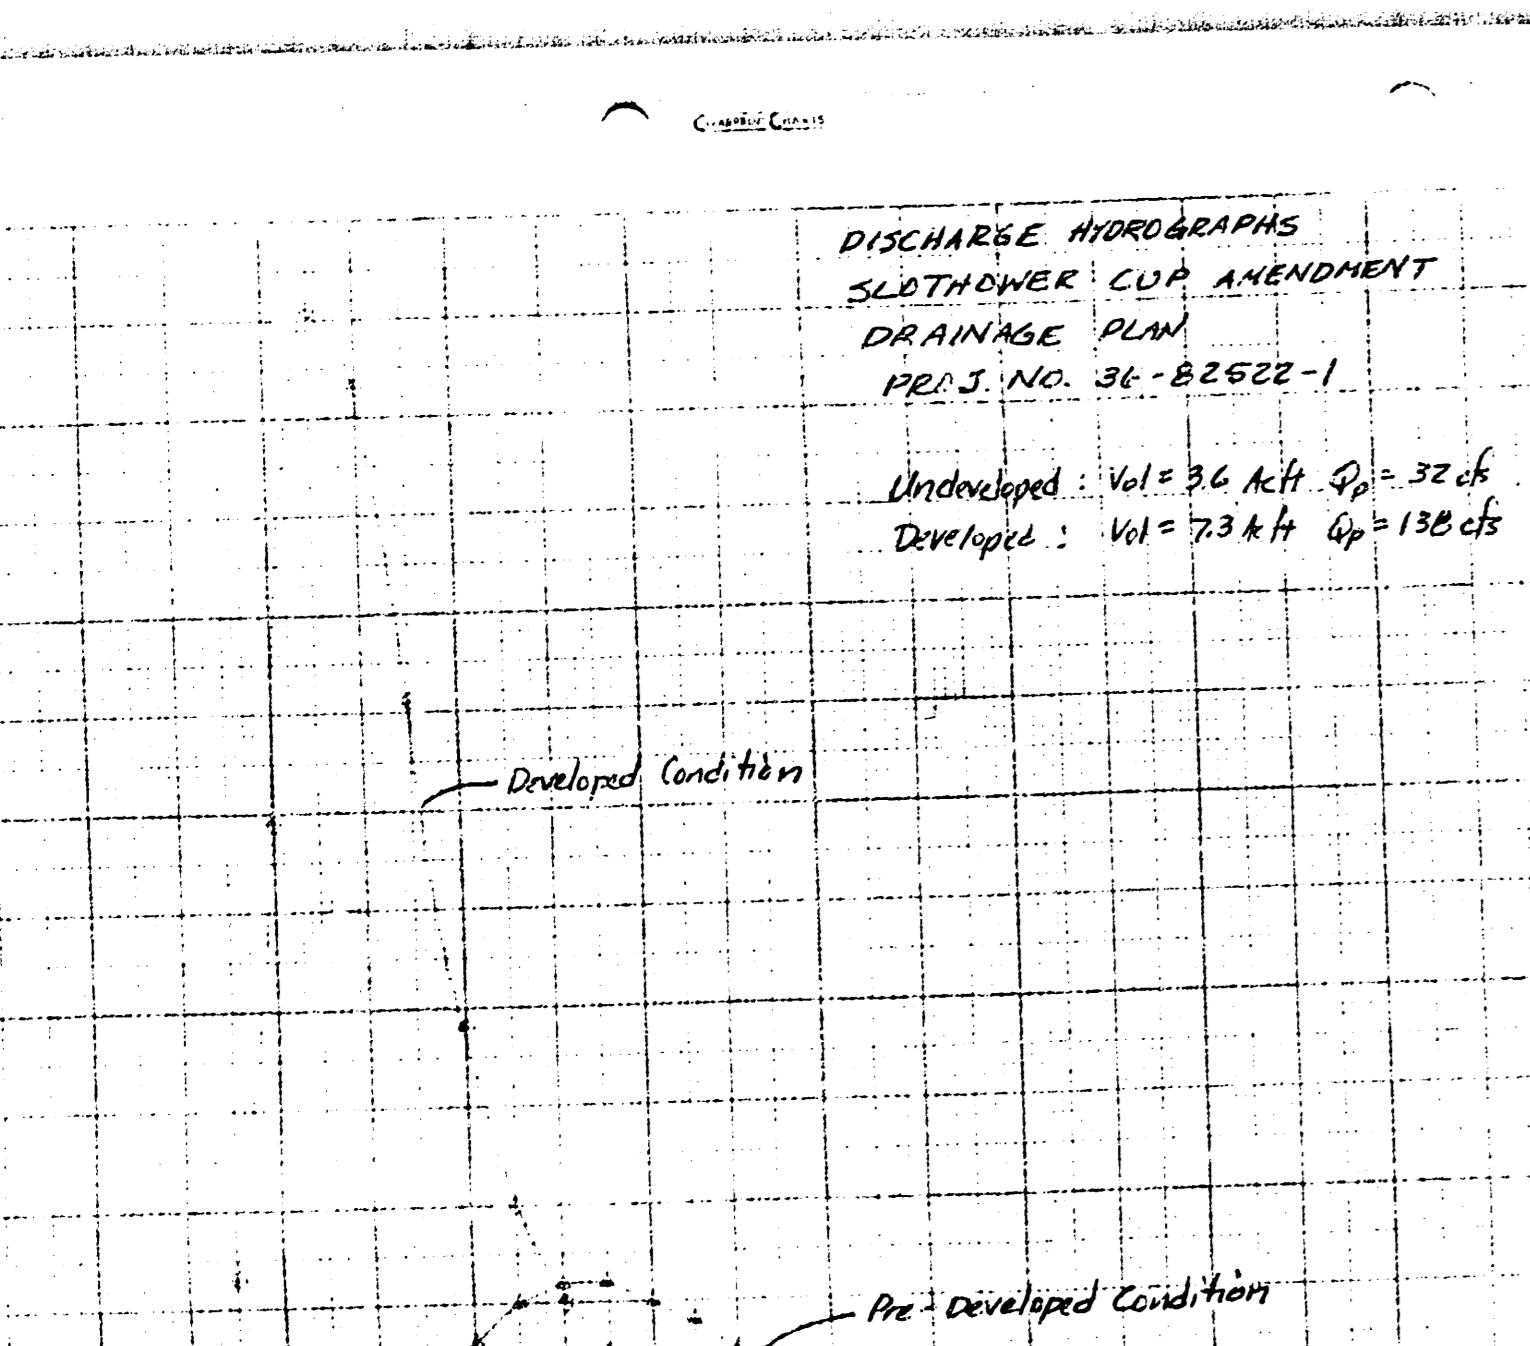 DISCHARGE HYDROGRAPHS
SLOTHOWER CUP AMENDMENT
DRAINAGE PLAN
PROJ. NO. 36-82522-1
Undeveloped : Vol = 3.6 Acft Qp = 32 cfs
Developed : Vol = 7.3 Acft Qp = 138 cfs
Developed Condition
Pre-Developed Condition